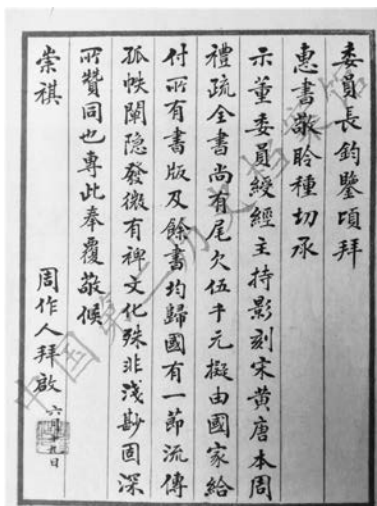 委員長鈞鑒頃拜
惠書敬聆種切承
示董委員綬經主持影刻宋黃唐本周
禮疏全書尚有尾欠伍千元擬由國家給
付所有書版及餘書均歸國有一節流傳
孤帙闡隐發微有裨文化殊非淺尠固深
所贊同也專此奉覆敬候
崇祺
周作人拜啟 六月廿九日
中国第二历史档案馆